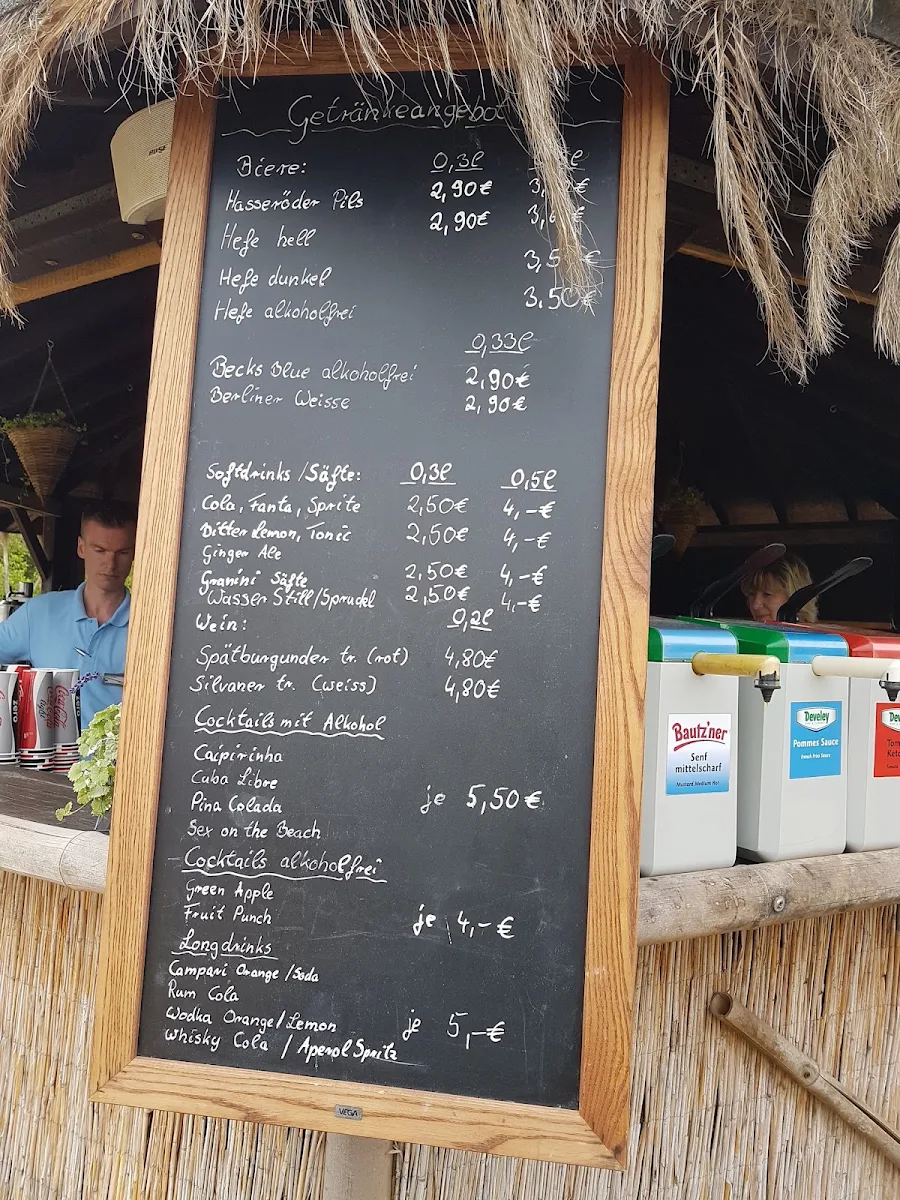 Getränkeangebot
Biere: 0,3l
Hasseröder Pils 2,90€
Hefe hell 2,90€
Hefe dunkel 3,50€
Hefe alkoholfrei 3.50€
0,33l
Becks Blue alkoholfrei 2,90€
Berliner Weisse 2,90€
Softdrinks/Säfte: 0,3l 0,5l
Cola, Fanta, Sprite 2,50€ 4,-€
Bitter Lemon, Tonic 2,50€ 4,-€
Ginger Ale
Granini Säfte 2,50€ 4,-€
Wasser Still/Sprudel 2,50€ 4,-€
Wein: 0,2l
Spätburgunder tr. (rot) 4,80€
Silvaner tr. (weiss) 4,80€
Cocktails mit Alkohol
Caipirinha
Cuba Libre
Pina Colada je 5,50€
Sex on the Beach
Cocktails alkoholfrei
Green Apple
Fruit Punch je 4,-€
Longdrinks
Campari Orange/Soda
Rum Cola
Wodka Orange/Lemon je 5,-€
Whisky Cola / Aperol Spritz
VEGA
BOSE
zero
Bautz'ner
Senf
mittelscharf
Mustard Medium Hot
Develey
Pommes Sauce
French Fries Sauce